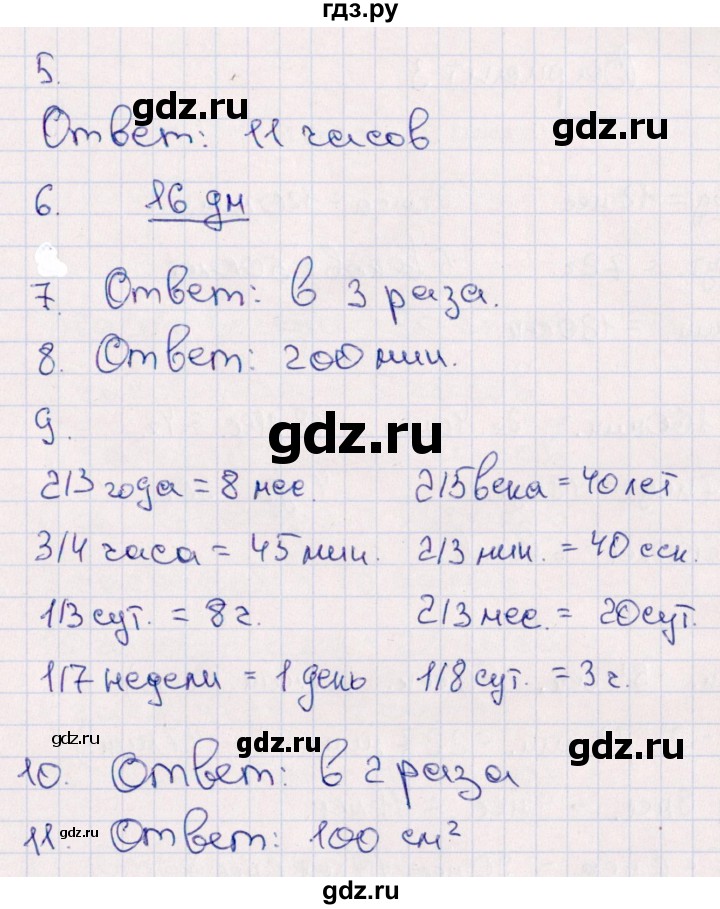 гдз.ру
5.
Ответ: 11 часов
gdz.ru
gdz.ru
6. 16 дм
7. Ответ: в 3 раза.
8. Ответ: 200 мин.
9.
gdz.ru
2/3 года = 8 мес. 2/5 века = 40 лет
3/4 часа = 45 мин. 2/3 мин. = 40 сек.
1/3 сут. = 8 г. 2/3 мес. = 20 сут.
1/7 недели = 1 день 1/8 сут. = 3 г.
gdz.ru
gdz.ru
gdz.ru
10. Ответ: в 2 раза
gdz.ru
11. Ответ: 100 см²
gdz.ru